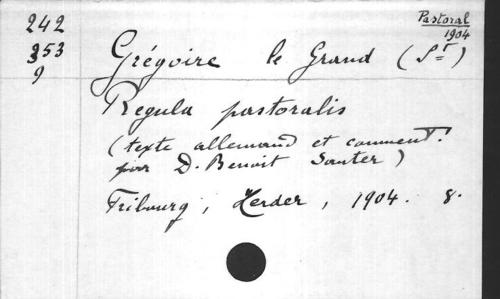 242
353
9
Pastoral
1904
Grégoire le Grand (St)
Regula pastoralis
(texte allemand et comment.
par D. Benoit Sauter)
Fribourg, Herder, 1904. 8.